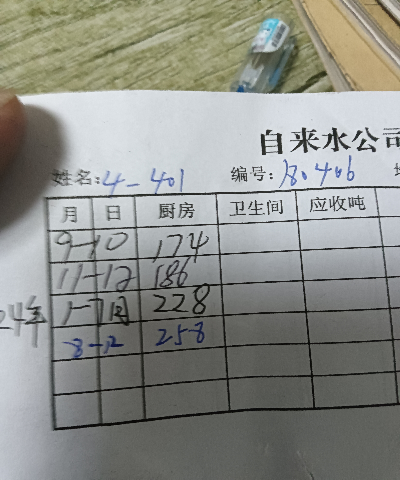 自来水公司
姓名:4-401 编号:180406
月 日 厨房 卫生间 应收吨
9-10 174
11-12 186
24年 1-7月 228
8-12 258